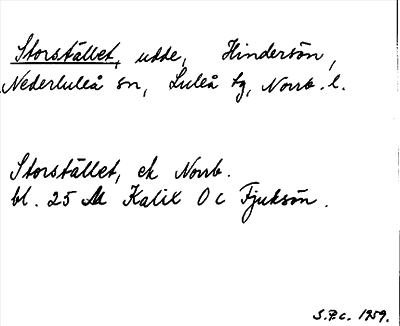 Storstället, udde, Hindersön,
Nederluleå sn, Luleå tg, Norrb. l.
Storstället, ek Norrb.
bl. 25 Kalix O c Fjuksön.
S.P.c. 1959.